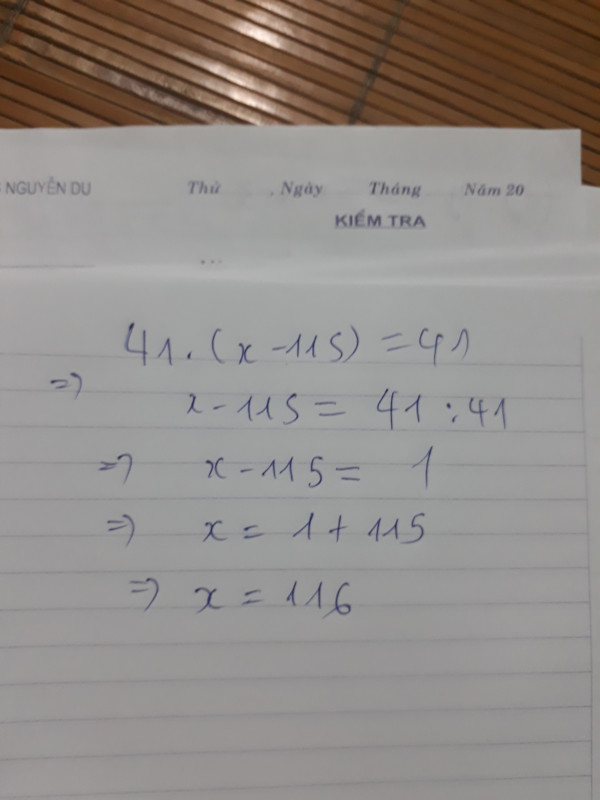 NGUYỄN DU
Thứ , Ngày Tháng Năm 20
KIỂM TRA
...
41.(x-115)=41
=> x-115= 41:41
=> x-115= 1
=> x= 1+115
=> x=116